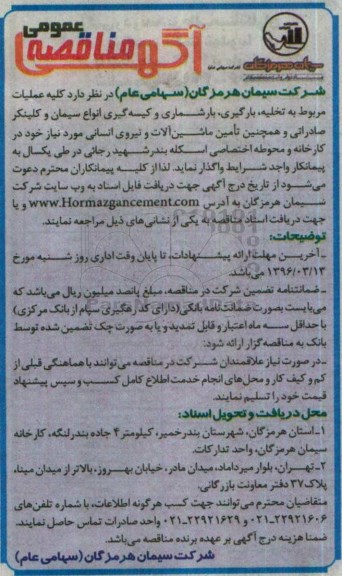 آگهی مناقصه عمومی
سیمان هرمزگان
شرکت سیمان هرمزگان (سهامی عام) در نظر دارد کلیه عملیات
مربوط به تخلیه، بارگیری، بارشماری و کیسه‌گیری انواع سیمان و کلینکر
صادراتی و همچنین تأمین ماشین‌آلات و نیروی انسانی مورد نیاز خود در
کارخانه و محوطه اختصاصی اسکله بندر شهید رجائی در طی یکسال به
پیمانکار واجد شرایط واگذار نماید. لذا از کلیه پیمانکاران محترم دعوت
می‌شود از تاریخ درج آگهی جهت دریافت فایل اسناد به وب سایت شرکت
سیمان هرمزگان به آدرس www.Hormazgancement.com و یا
جهت دریافت اسناد مناقصه به یکی از نشانی‌های ذیل مراجعه نمایند.
توضیحات:
ـ آخرین مهلت ارائه پیشنهادات، تا پایان وقت اداری روز شنبه مورخ
۱۳۹۶/۰۳/۱۳ می‌باشد.
ـ ضمانتنامه تضمین شرکت در مناقصه، مبلغ پانصد میلیون ریال می‌باشد که
می‌بایست بصورت ضمانت‌نامه بانکی (دارای کد رهگیری سپام از بانک مرکزی)
با حداقل سه ماه اعتبار و قابل تمدید و یا به صورت چک تضمین شده توسط
بانک به مناقصه‌گزار ارائه شود:
ـ در صورت نیاز علاقمندان شرکت در مناقصه می‌توانند با هماهنگی قبلی از
کم و کیف کار و محل‌های انجام خدمت اطلاع کامل کسب و سپس پیشنهاد
قیمت خود را تسلیم نمایند.
محل دریافت و تحویل اسناد:
۱ـ استان هرمزگان، شهرستان بندر خمیر، کیلومتر ۴ جاده بندر لنگه، کارخانه
سیمان هرمزگان، واحد تدارکات.
۲ـ تهران، بلوار میرداماد، میدان مادر، خیابان بهروز، بالاتر از میدان مینا،
پلاک ۳۷ دفتر معاونت بازرگانی.
متقاضیان محترم می‌توانند جهت کسب هرگونه اطلاعات، با شماره تلفن‌های
۰۲۱-۲۲۹۲۱۶۰۶ و ۰۲۱-۲۲۹۲۱۶۲۹ واحد صادرات تماس حاصل نمایند.
ضمنا هزینه درج آگهی بر عهده برنده مناقصه می‌باشد.
شرکت سیمان هرمزگان (سهامی عام)